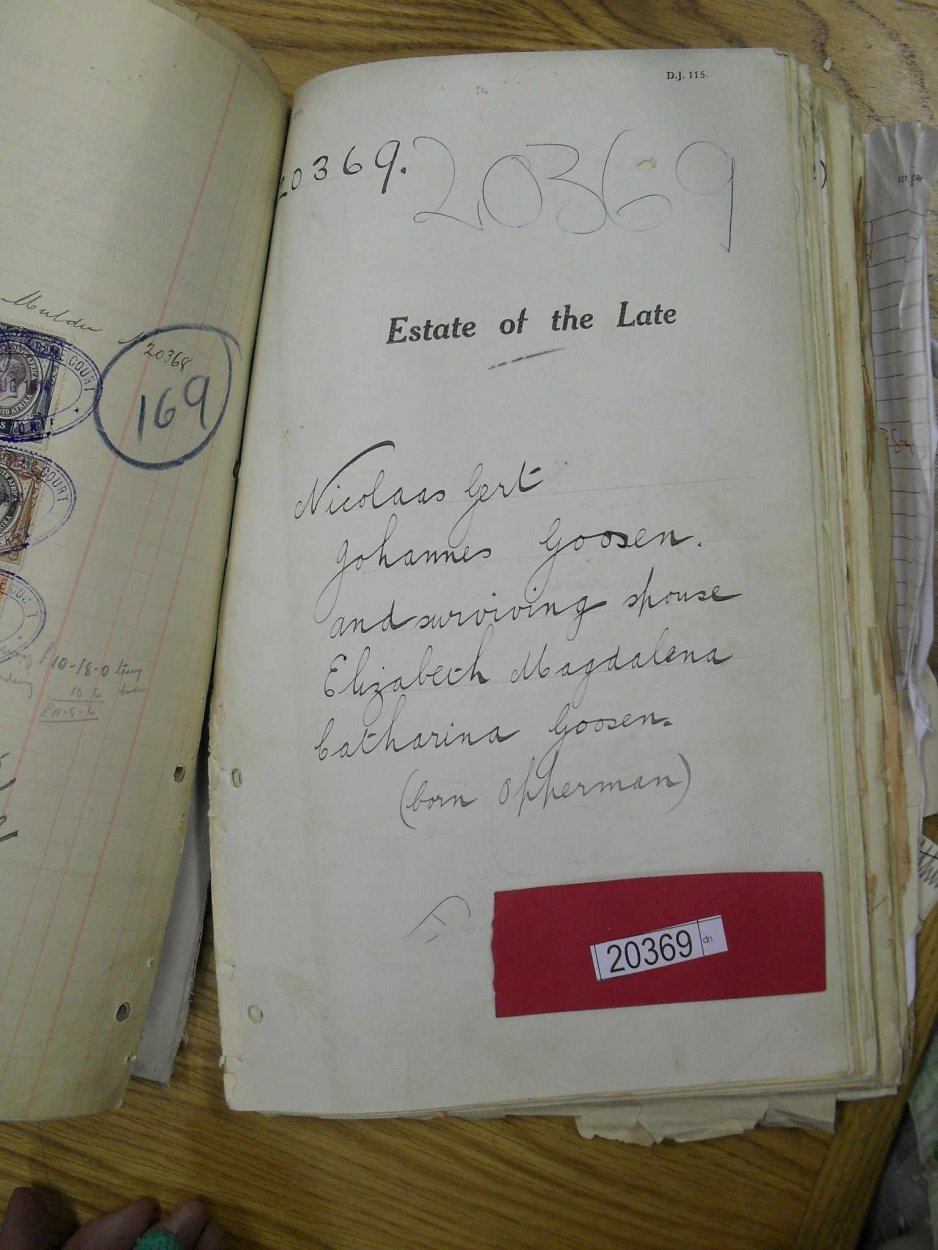 Mulder
20368
169
COURT
COURT
10-18-0
10 6
D.J. 115.
20369.
20369
Estate of the Late
Nicolaas Gert
Johannes Goosen.
and surviving spouse
Elizabeth Magdalena
Catharina Goosen.
(born Opperman)
20369
dn